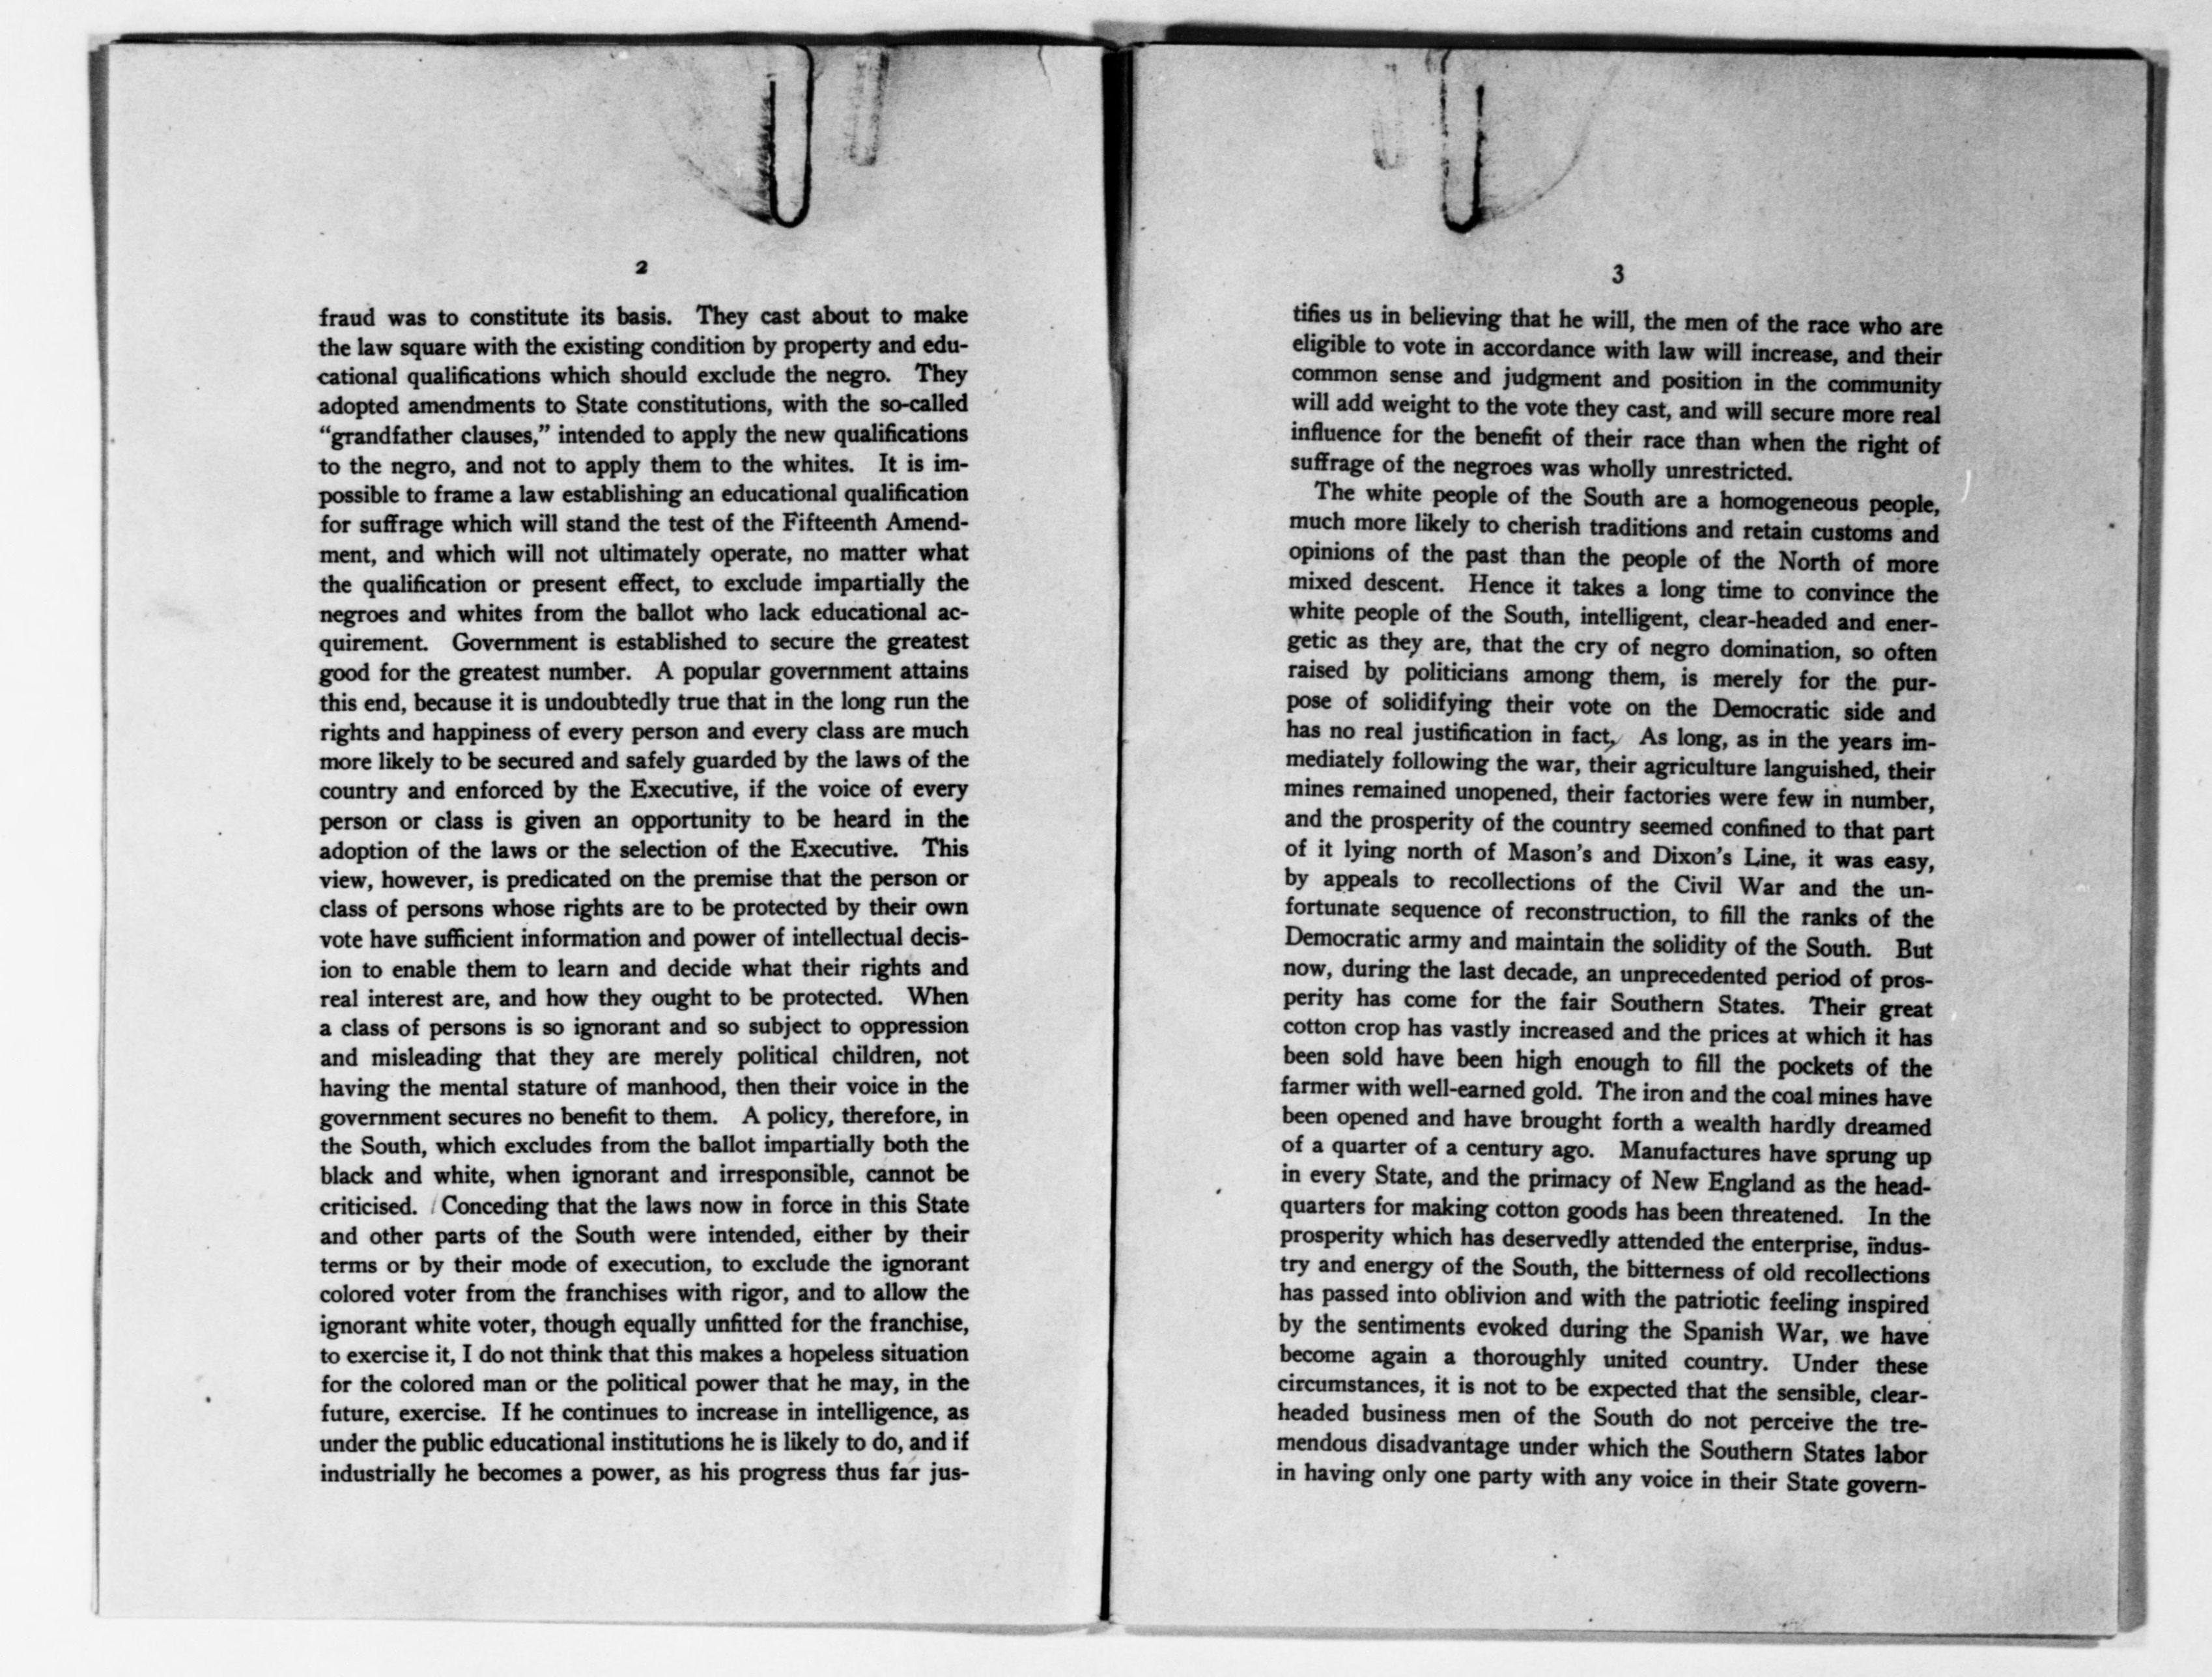 2
fraud was to constitute its basis. They cast about to make
the law square with the existing condition by property and edu-
cational qualifications which should exclude the negro. They
adopted amendments to State constitutions, with the so-called
“grandfather clauses,” intended to apply the new qualifications
to the negro, and not to apply them to the whites. It is im-
possible to frame a law establishing an educational qualification
for suffrage which will stand the test of the Fifteenth Amend-
ment, and which will not ultimately operate, no matter what
the qualification or present effect, to exclude impartially the
negroes and whites from the ballot who lack educational ac-
quirement. Government is established to secure the greatest
good for the greatest number. A popular government attains
this end, because it is undoubtedly true that in the long run the
rights and happiness of every person and every class are much
more likely to be secured and safely guarded by the laws of the
country and enforced by the Executive, if the voice of every
person or class is given an opportunity to be heard in the
adoption of the laws or the selection of the Executive. This
view, however, is predicated on the premise that the person or
class of persons whose rights are to be protected by their own
vote have sufficient information and power of intellectual decis-
ion to enable them to learn and decide what their rights and
real interest are, and how they ought to be protected. When
a class of persons is so ignorant and so subject to oppression
and misleading that they are merely political children, not
having the mental stature of manhood, then their voice in the
government secures no benefit to them. A policy, therefore, in
the South, which excludes from the ballot impartially both the
black and white, when ignorant and irresponsible, cannot be
criticised. Conceding that the laws now in force in this State
and other parts of the South were intended, either by their
terms or by their mode of execution, to exclude the ignorant
colored voter from the franchises with rigor, and to allow the
ignorant white voter, though equally unfitted for the franchise,
to exercise it, I do not think that this makes a hopeless situation
for the colored man or the political power that he may, in the
future, exercise. If he continues to increase in intelligence, as
under the public educational institutions he is likely to do, and if
industrially he becomes a power, as his progress thus far jus-
3
tifies us in believing that he will, the men of the race who are
eligible to vote in accordance with law will increase, and their
common sense and judgment and position in the community
will add weight to the vote they cast, and will secure more real
influence for the benefit of their race than when the right of
suffrage of the negroes was wholly unrestricted.
The white people of the South are a homogeneous people,
much more likely to cherish traditions and retain customs and
opinions of the past than the people of the North of more
mixed descent. Hence it takes a long time to convince the
white people of the South, intelligent, clear-headed and ener-
getic as they are, that the cry of negro domination, so often
raised by politicians among them, is merely for the pur-
pose of solidifying their vote on the Democratic side and
has no real justification in fact, As long, as in the years im-
mediately following the war, their agriculture languished, their
mines remained unopened, their factories were few in number,
and the prosperity of the country seemed confined to that part
of it lying north of Mason’s and Dixon’s Line, it was easy,
by appeals to recollections of the Civil War and the un-
fortunate sequence of reconstruction, to fill the ranks of the
Democratic army and maintain the solidity of the South. But
now, during the last decade, an unprecedented period of pros-
perity has come for the fair Southern States. Their great
cotton crop has vastly increased and the prices at which it has
been sold have been high enough to fill the pockets of the
farmer with well-earned gold. The iron and the coal mines have
been opened and have brought forth a wealth hardly dreamed
of a quarter of a century ago. Manufactures have sprung up
in every State, and the primacy of New England as the head-
quarters for making cotton goods has been threatened. In the
prosperity which has deservedly attended the enterprise, indus-
try and energy of the South, the bitterness of old recollections
has passed into oblivion and with the patriotic feeling inspired
by the sentiments evoked during the Spanish War, we have
become again a thoroughly united country. Under these
circumstances, it is not to be expected that the sensible, clear-
headed business men of the South do not perceive the tre-
mendous disadvantage under which the Southern States labor
in having only one party with any voice in their State govern-